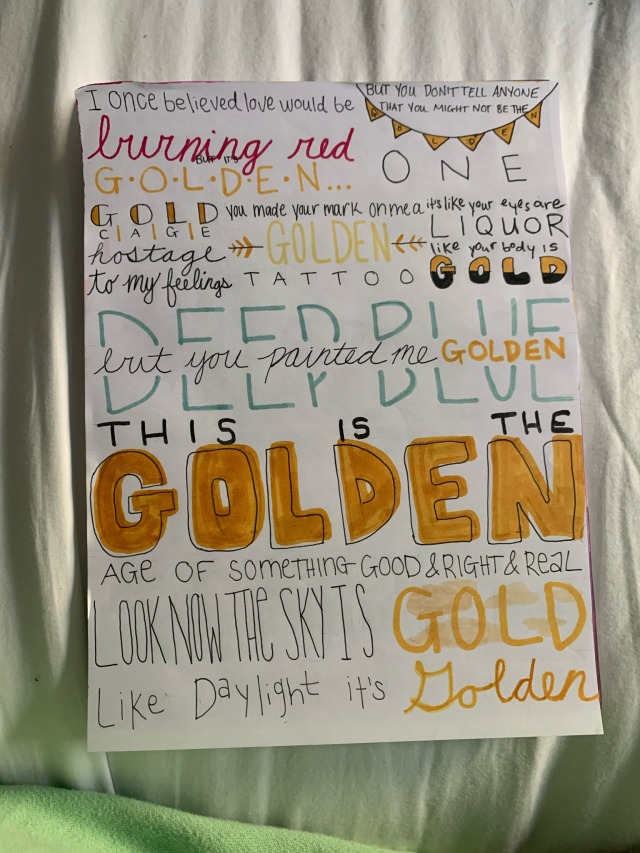 I once believed love would be
burning red
BUT IT'S
G·O·L·D·E·N...
BUT YOU DON'T TELL ANYONE
THAT YOU MIGHT NOT BE THE
GOLDEN
ONE
GOLD
C|A|G|E
hostage
to my feelings
you made your mark on me a
GOLDEN
TATTOO
it's like your eyes are
LIQUOR
like your body is
GOLD
DEEP BLUE
but you painted me GOLDEN
THIS IS THE
GOLDEN
AGE OF SOMETHING GOOD & RIGHT & Real
LOOK NOW THE SKY IS GOLD
Like Daylight it's Golden